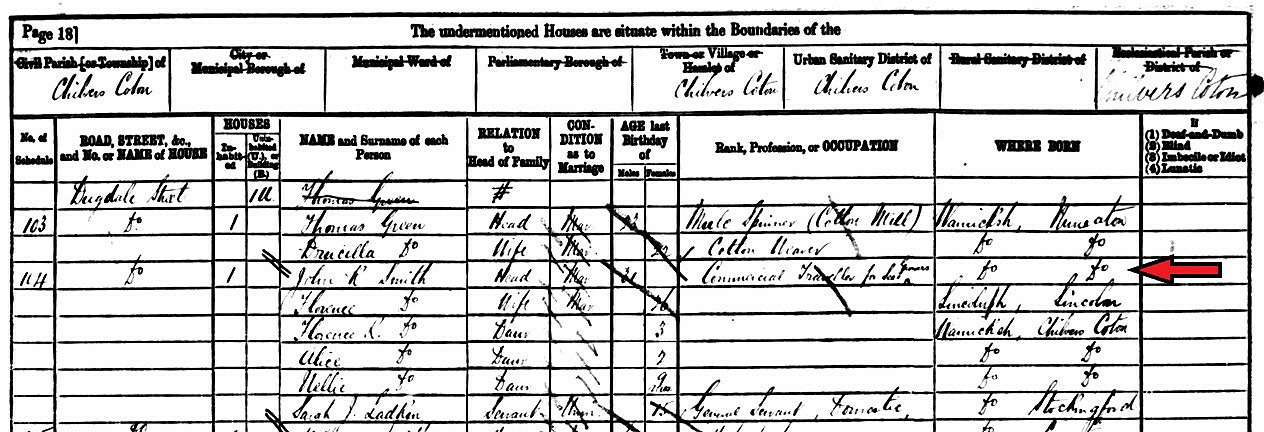 Page 18] The undermentioned Houses are situate within the Boundaries of the
Civil Parish [or Township] of City or Municipal Borough of Municipal Ward of Parliamentary Borough of Town or Village or Hamlet of Urban Sanitary District of Rural Sanitary District of Ecclesiastical Parish or District of
Chilvers Coton Chilvers Coton Chilvers Coton Chilvers Coton
No. of Schedule ROAD, STREET, &c., and No. or NAME of HOUSE HOUSES Inhabited Uninhabited (U.), or Building (B.) NAME and Surname of each Person RELATION to Head of Family CONDITION as to Marriage AGE last Birthday of Males Females Rank, Profession, or OCCUPATION WHERE BORN If (1) Deaf-and-Dumb (2) Blind (3) Imbecile or Idiot (4) Lunatic
Dugdale Street 1U Thomas Green #
103 Do 1 Thomas Green Head Mar 23 Mule Spinner (Cotton Mill) Warwicksh, Nuneaton
Drucilla Do Wife Mar 22 Cotton Weaver Do Do
104 Do 1 John K Smith Head Mar Commercial Traveller for Do Do
Florence Do Wife Mar 26 Lincolnsh, Lincoln
Florence K. Do Daur 3 Warwicksh, Chilvers Coton
Alice Do Daur 2 Do Do
Nellie Do Daur 9m Do Do
Sarah J. Ladkin Servant Unm 15 General Servant, Domestic, Do Stockingford